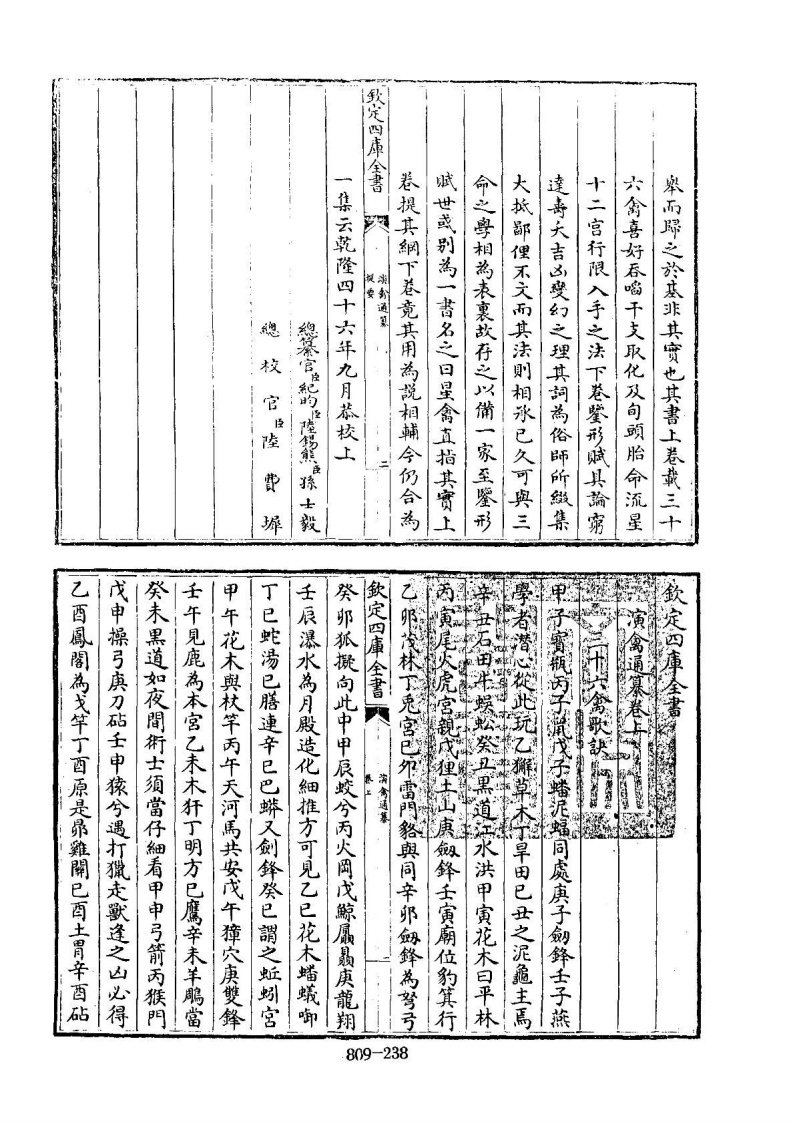 舉而歸之於基非其實也其書上卷載三十
六禽喜好吞啗干支取化及旬頭胎命流星
十二宮行限入手之法下卷鑒形賦具論窮
達壽夭吉凶變幻之理其詞為俗師所綴集
大抵鄙俚不文而其法則相承已久可與三
命之學相為表裏故存之以備一家至鑒形
賦世或别為一書名之曰星禽直指其實上
卷提其綱下卷竟其用為説相輔今仍合為
欽定四庫全書
演禽通纂
提要
二
一集云乾隆四十六年九月恭校上
總纂官臣紀昀臣陸錫熊臣孫士毅
總校官臣陸費墀
欽定四庫全書
演禽通纂卷上
三十六禽歌訣
甲子寶瓶丙子鼠戊子蟠泥蝠同處庚子劔鋒壬子燕
學者潛心從此玩乙獬草木丁旱田己丑之泥龜主焉
辛丑石田牛蜈蚣癸丑黒道江水洪甲寅花木曰平林
丙寅尾火虎宮親戊狸土山庚劔鋒壬寅廟位豹箕行
乙卯茂林丁兎宮己卯雷門貉與同辛卯劔鋒為弩弓
癸卯狐擬向此中甲辰蛟兮丙火岡戊鯨贔屭庚龍翔
欽定四庫全書
演禽通纂
卷上
一
壬辰瀑水為月殿造化細推方可見乙巳花木蟠蟻啣
丁巳蛇湯已膳連辛巳巴蟒又劍鋒癸巳謂之蚯蚓宮
甲午花木與杖竿丙午天河馬共安戊午獐穴庚雙鋒
壬午見鹿為本宮乙未木犴丁明方己鷹辛未羊鵰當
癸未黒道如夜間術士須當仔細看甲申弓箭丙猴門
戊申操弓庚刀砧壬申猿兮遇打獵走獸逢之凶必得
乙酉鳳閣為戈竿丁酉原是昴雞闗己酉土胃辛酉砧
809-238